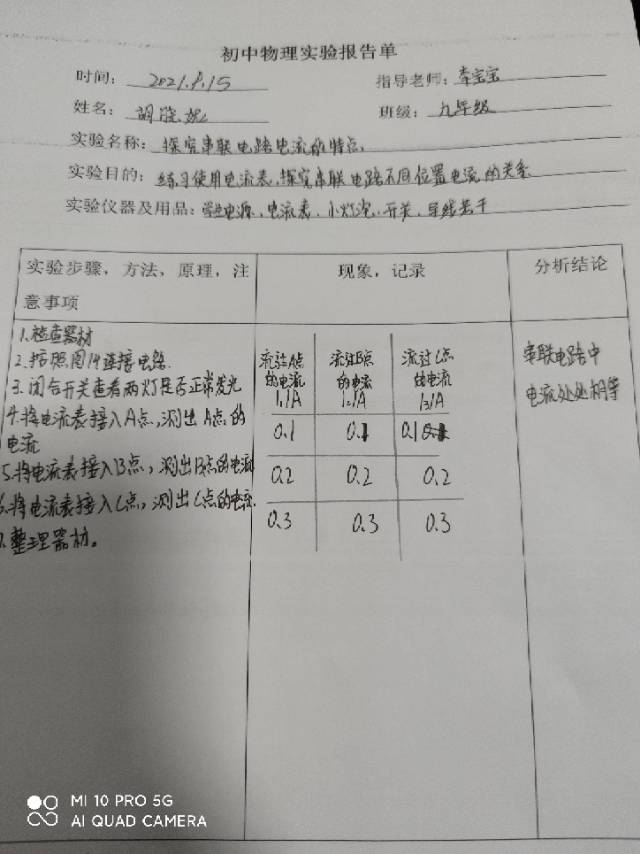 初中物理实验报告单
时间: 2021.8.15 指导老师: 李宝宝
姓名: 胡晓妮 班级: 九年级
实验名称: 探究串联电路电流的特点.
实验目的: 练习使用电流表,探究串联电路不同位置电流的关系
实验仪器及用品: 学生电源、电流表、小灯泡、开关、导线若干
实验步骤,方法,原理,注 现象,记录 分析结论
意事项
1.检查器材
2.按照图14连接电路.
3.闭合开关查看两灯是否正常发光
4.将电流表接入A点,测出A点的
电流
5.将电流表接入B点,测出B点的电流
6.将电流表接入C点,测出C点的电流.
7.整理器材。
流过A点 流过B点 流过C点
的电流 的电流 的电流
I₁/A I₂/A I₃/A
0.1 0.1 0.1
0.2 0.2 0.2
0.3 0.3 0.3
串联电路中
电流处处相等
MI 10 PRO 5G
AI QUAD CAMERA